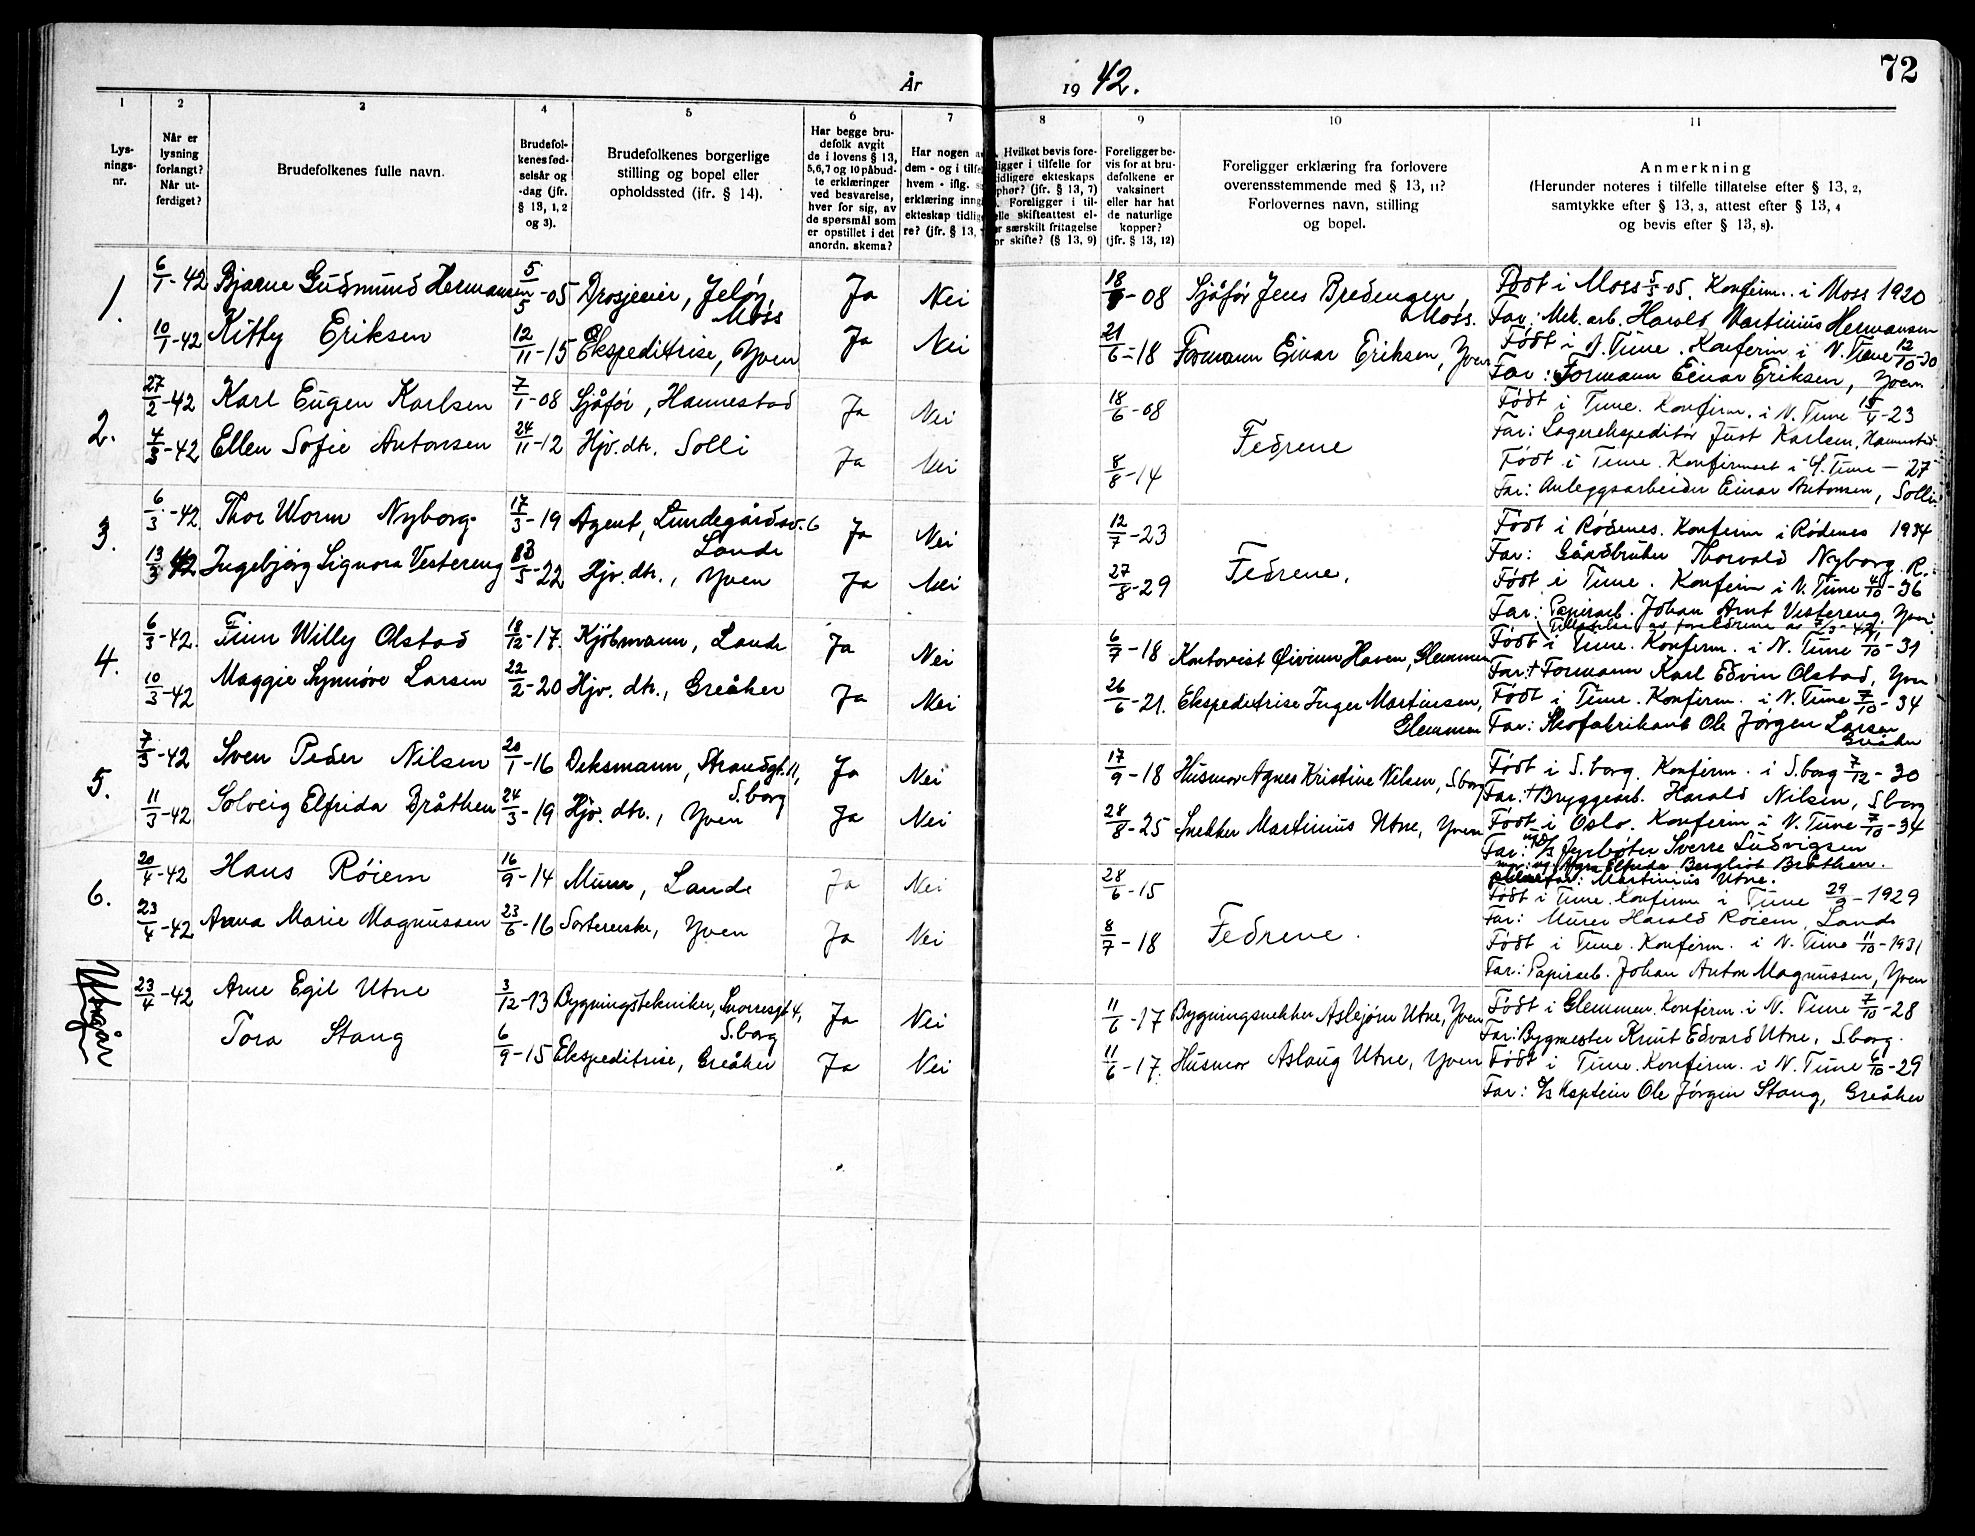 72
År 1942.
1
2
3
4
5
6
7
8
9
10
11
Lys-
nings-
nr.
Når er
lysning
forlangt?
Når ut-
ferdiget?
Brudefolkenes fulle navn.
Brudefol-
kenes fød-
selsår og
-dag (jfr.
§ 13, 1, 2
og 3).
Brudefolkenes borgerlige
stilling og bopel eller
opholdssted (ifr. § 14).
Har begge bru-
defolk avgit
de i lovens § 13,
5,6,7 og 10 påbud-
te erklæringer
ved besvarelse,
hver for sig, av
de spørsmål som
er opstillet i det
anordn. skema?
Har nogen
dem - og i tilfe
hvem - iflg.
erklæring inng
ekteskap tidlig
re? (jfr. § 13,
Hvilket bevis fore-
ligger i tilfelle for
tidligere ekteskaps
ophør? (jfr. § 13, 7)
Foreligger i til-
elle skifteattest el-
r særskilt fritagelse
or skifte? (§ 13, 9)
Foreligger be-
vis for at bru-
defolkene er
vaksinert
eller har hat
de naturlige
kopper?
(jfr. § 13, 12)
Foreligger erklæring fra forlovere
overensstemmende med § 13, 11?
Forlovernes navn, stilling
og bopel.
Anmerkning
(Herunder noteres i tilfelle tillatelse efter § 13, 2,
samtykke efter § 13, 3, attest efter § 13, 4
og bevis efter § 13, 8).
1. 6/1-42 Bjarne Gudmund Hermansen 5/5-05 Drosjeeier, Jeløy, Ja Nei 18/-08 Sjåfør Jens Bredengen, Født i Moss 5/5-05. Konfirm. i Moss 1920
Moss Moss. Far: Mek. arb. Harald Martinius Hermansen
10/1-42 Kitty Eriksen 12/11-15 Ekspeditrise, Yven Ja Nei 21/6-18 Formann Einar Eriksen, Yven Født i N. Tune. Konfirm i N. Tune 12/10-30
Far: Formann Einar Eriksen, Yven
2. 27/2-42 Karl Eugen Karlsen 7/1-08 Sjåfør, Hannestad Ja Nei 18/6-08 Fedrene Født i Tune. Konfirm. i N. Tune 15/4-23
Far: Lagerekspeditør Just Karlsen, Hannestad.
4/3-42 Ellen Sofie Antonsen 24/11-12 Hjv. dtr. Solli Ja Nei 8/8-14 Født i Tune. Konfirmert i N. Tune - 27
Far: Anleggsarbeider Einar Antonsen, Solli.
3. 6/3-42 Thor Worm Nyborg. 17/3-19 Agent, Lundegårdsv. 6 Ja Nei 12/7-23 Fedrene. Født i Rødenes. Konfirm i Rødenes 1934
Lande Far: Gårdbruker Thorvald Nyborg R.
13/3 42 Ingebjørg Signora Vestereng /5-22 Hjv. dtr., Yven Ja Nei 27/8-29 Født i Tune. Konfirm i N. Tune 4/10-36
Far: Papirarb. Johan Arnt Vestereng, Yven.
(Tillatelse av foreldrene av 7/3-42)
4. 6/3-42. Finn Willy Olstad 18/12-17. Kjøbmann, Lande Ja Nei 6/7-18 Kontorist Øivinn Haven, Glemmen Født i Tune. Konfirm. i N. Tune 11/10-31
Far: † Formann Karl Edvin Olstad, Yven
10/3-42 Maggie Synnøve Larsen 22/2-20 Hjv. dtr., Greåker Ja Nei 26/6-21. Ekspeditrise Inger Martinsen, Født i Tune. Konfirm. i N. Tune 7/10-34
Glemmen Far: Skofabrikant Ole Jørgen Larsen
Greåker
5. 7/3-42 Sven Peder Nilsen 20/1-16 Deksmann, Strandgt. 11, Ja Nei 17/9-18 Husmor Agnes Kristine Nilsen, S.borg Født i S.borg. Konfirm. i S.borg 7/12-30
S.borg Far: † Bryggearb. Harald Nilsen, S.borg
11/3-42 Solveig Elfrida Bråthen 24/3-19 Hjv. dtr., Yven Ja Nei 28/8-25 Snekker Martinius Utne, Yven Født i Oslo. Konfirm i N. Tune 7/10-34
Far: Fyrbøter Sverre Ludvigsen
Elfrida Bergliot Bråthen.
Martinius Utne.
6. 20/4-42 Hans Røiem 16/9-14 Murer, Lande Ja Nei 28/6-15 Fedrene. Født i Tune. Konfirm i Tune 29/9-1929
Far: Murer Harald Røiem, Lande
23/4-42 Anna Marie Magnussen 23/6-16 Sortererske, Yven Ja Nei 8/7-18 Født i Tune. Konfirm. i N. Tune 11/10-1931
Far: Papirarb. Johan Anton Magnussen, Yven
Utgår 23/4-42 Arne Egil Utne 3/12-13 Bygningstekniker, Snorresgt 4, Ja Nei 11/6-17 Bygningssnekker Asbjørn Utne, Yven Født i Glemmen. Konfirm. i N. Tune 7/10-28
S.borg Far: Bygmester Knut Edvard Utne, S.borg.
Tora Stang 6/9-15 Ekspeditrise, Greåker Ja Nei 11/6-17. Husmor Aslaug Utne, Yven Født i Tune. Konfirm. i N. Tune 6/10-29
Far: Kaptein Ole Jørgen Stang, Greåker